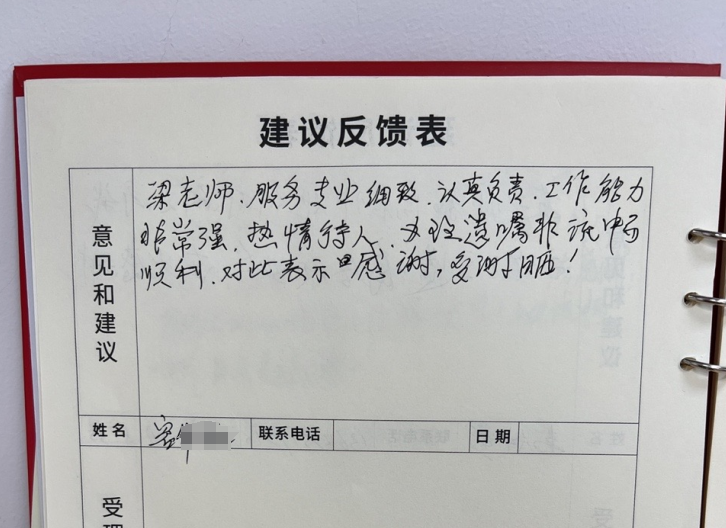 建议反馈表
意见和建议
梁老师、服务专业细致、认真负责、工作能力
非常强、热情待人、办理遗嘱非
顺利、对此表示感谢，
姓名
联系电话
日期
受理